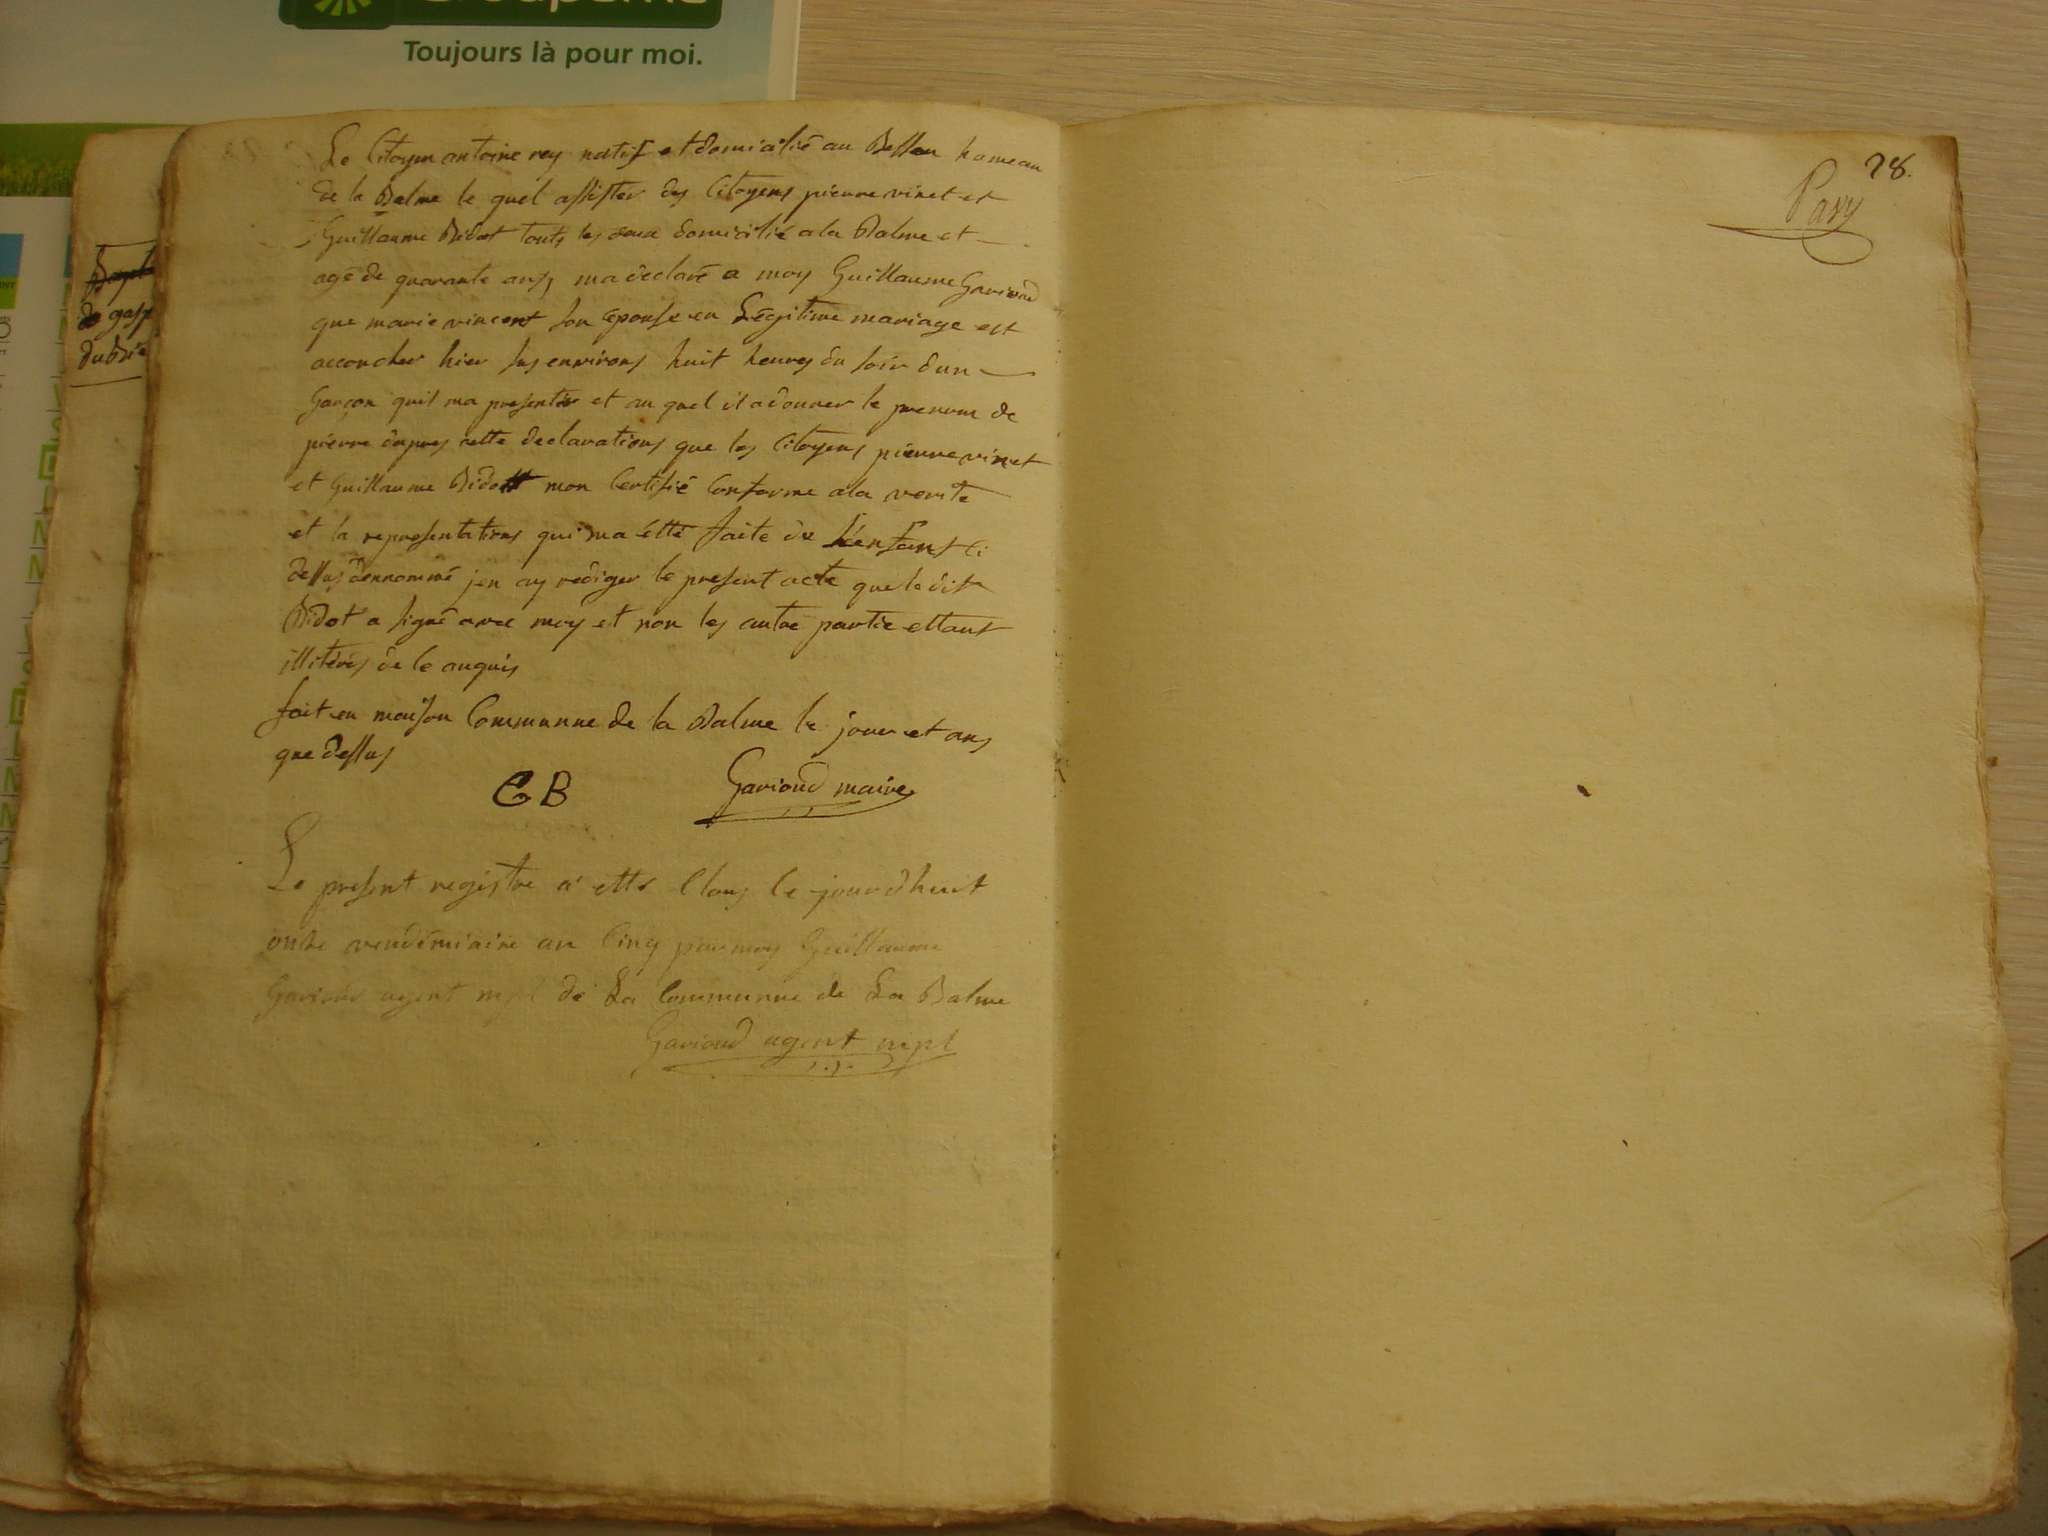 Toujours là pour moi.
Le Citoyen antoine rey natif et domicilié au Bessau hameau
de la Balme le quel assister des Citoyens pierre vinet et
Guillaume Bidot touts les deux domicilié a la Balme et
agé de quarante ans, ma declaré a moy Guillaume Gavioud
que marie vincent son épouse en Légitime mariage est
accoucher hier les environs huit heures du soir dun
Garçon quil ma presenter et au quel il a donner le prenom de
pierre dapres cette declarations que les Citoyens pierre vinet
et Guillaume Bidott mon Certifié Conforme a la verite
et la representations qui ma étté faite de L'enfant Ci
dessus dennommé jen ay rediger le present acte que le dit
Bidot a signé avec moy et non les autre partie ettant
illiterés de le anquis
fait en maison Communne de la Balme le jour et ans
que dessus
GB Gavioud maire
Le present registre a etté Clous le jourdhuit
onze vendémiaire an Cinq par moy Guillaume
Gavioud agent mpl de La Communne de La Balme
Gavioud agent mpl
de gasp
dubois
28.
Pavy